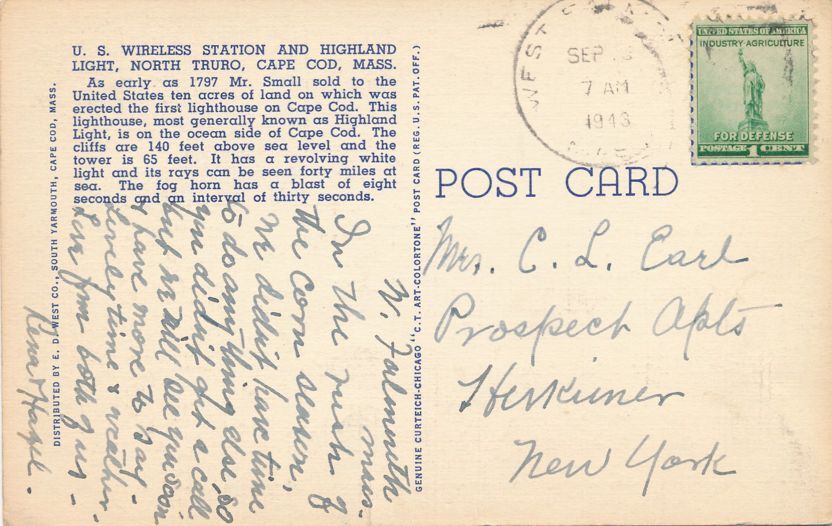 U. S. WIRELESS STATION AND HIGHLAND
LIGHT, NORTH TRURO, CAPE COD, MASS.
As early as 1797 Mr. Small sold to the
United States ten acres of land on which was
erected the first lighthouse on Cape Cod. This
lighthouse, most generally known as Highland
Light, is on the ocean side of Cape Cod. The
cliffs are 140 feet above sea level and the
tower is 65 feet. It has a revolving white
light and its rays can be seen forty miles at
sea. The fog horn has a blast of eight
seconds and an interval of thirty seconds.
W. Falmouth
mass.
In the rush of
the corn season,
we didn't have time
to do any thing else, so
you didn't get a call
but will see you soon
& have more to say -
Lovely time & weather -
Love from both of us -
Rena & Hazel.
DISTRIBUTED BY E. D. WEST CO., SOUTH YARMOUTH, CAPE COD, MASS.
GENUINE CURTEICH-CHICAGO "C.T. ART-COLORTONE" POST CARD (REG. U.S. PAT. OFF.)
WEST
SEP
7 AM
1943
UNITED STATES OF AMERICA
INDUSTRY-AGRICULTURE
FOR DEFENSE
POSTAGE 1 CENT
POST CARD
Mrs. C. L. Earl
Prospect Apts
Herkimer
New York